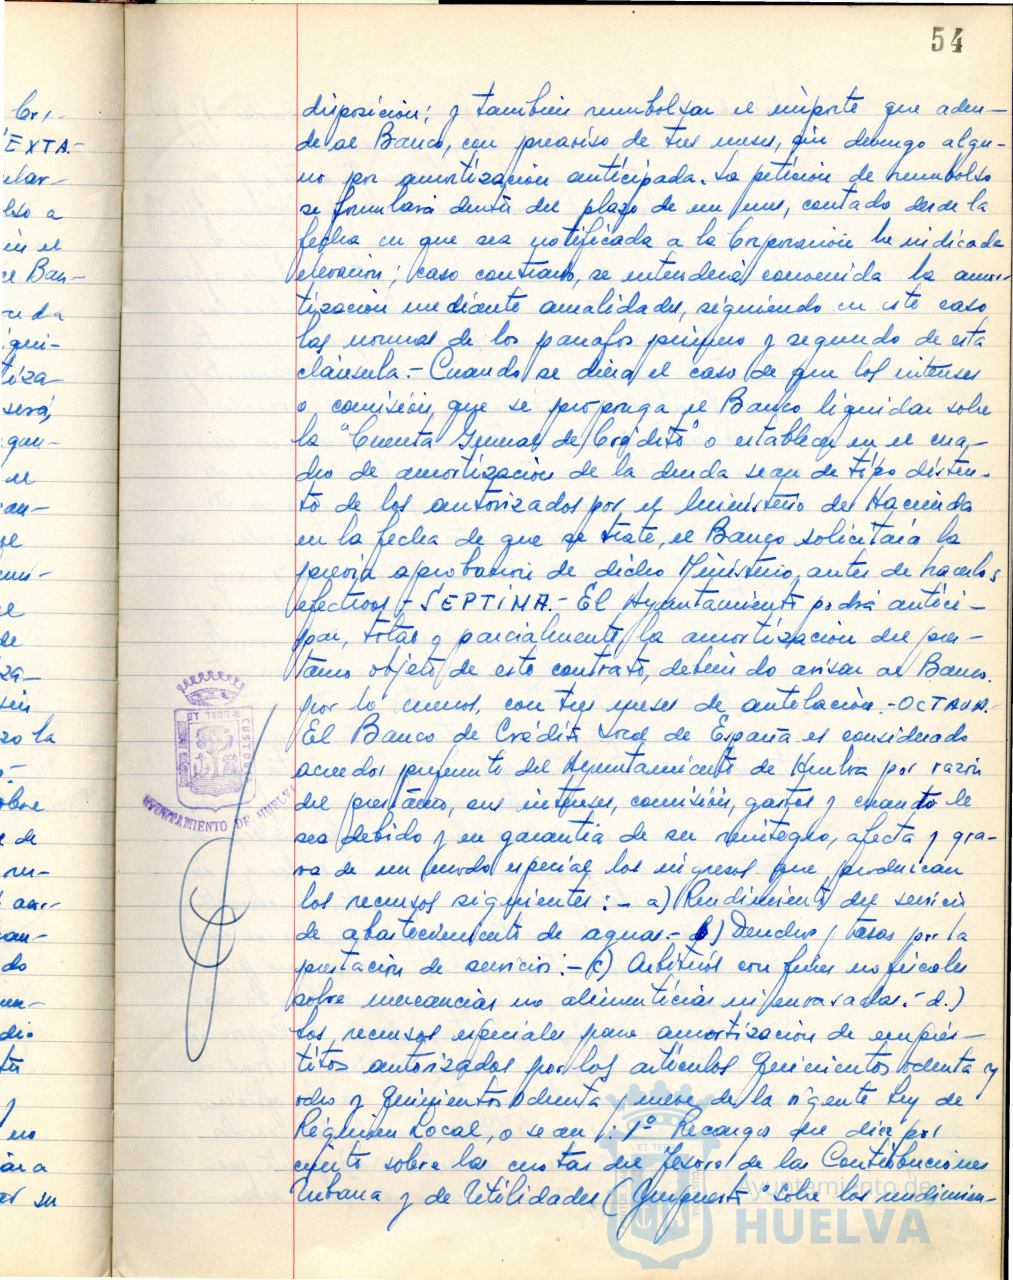 54
disposición; y también reembolsar el importe que aden-
de al Banco, con preaviso de tres meses, sin devengo algu-
no por amortización anticipada. La petición de reembolso
se formulará dentro del plazo de un mes, contado desde la
fecha en que sea notificada a la Corporación la indicada
elevación; caso contrario, se entenderá convenida la amor-
tización mediante anualidades, siguiendo en este caso
las normas de los párrafos primero y segundo de esta
cláusula.- Cuando se diera el caso de que los intereses
o comisión que se proponga el Banco liquidar sobre
la "Cuenta General de Crédito" o establecer en el cua-
dro de amortización de la deuda sean de tipo distin-
to de los autorizados por el Ministerio de Hacienda
en la fecha de que se trate, el Banco solicitará la
previa aprobación de dicho Ministerio, antes de hacerlos
efectivos.- SEPTIMA.- El Ayuntamiento podrá antici-
par, total y parcialmente, la amortización del prés-
tamo objeto de este contrato, debiendo avisar al Banco.
por lo menos, con tres meses de antelación.- OCTAVA.-
El Banco de Crédito Local de España es considerado
acreedor preferente del Ayuntamiento de Huelva por razón
del préstamo, sus intereses, comisión, gastos y cuanto le
sea debido y en garantía de su reintegro, afecta y gra-
va de un modo especial los ingresos que produzcan
los recursos siguientes:- a) Rendimiento del servicio
de abastecimiento de aguas.- b) Derechos y tasas por la
prestación de servicios:- c) Arbitrios con fines no fiscales
sobre mercancías no alimenticias ni envasadas.- d.)
Los recursos especiales para amortización de emprés-
titos autorizados por los artículos quinientos ochenta y
ocho y quinientos ochenta y nueve de la vigente Ley de
Régimen Local, o sean: 1º Recargo del diez por
ciento sobre las cuotas del Tesoro de las Contribuciones
Urbana y de Utilidades (Impuesto sobre los rendimien-
ET TERRAE CUSTODIA
AYUNTAMIENTO DE HUELVA
Ayuntamiento de
HUELVA